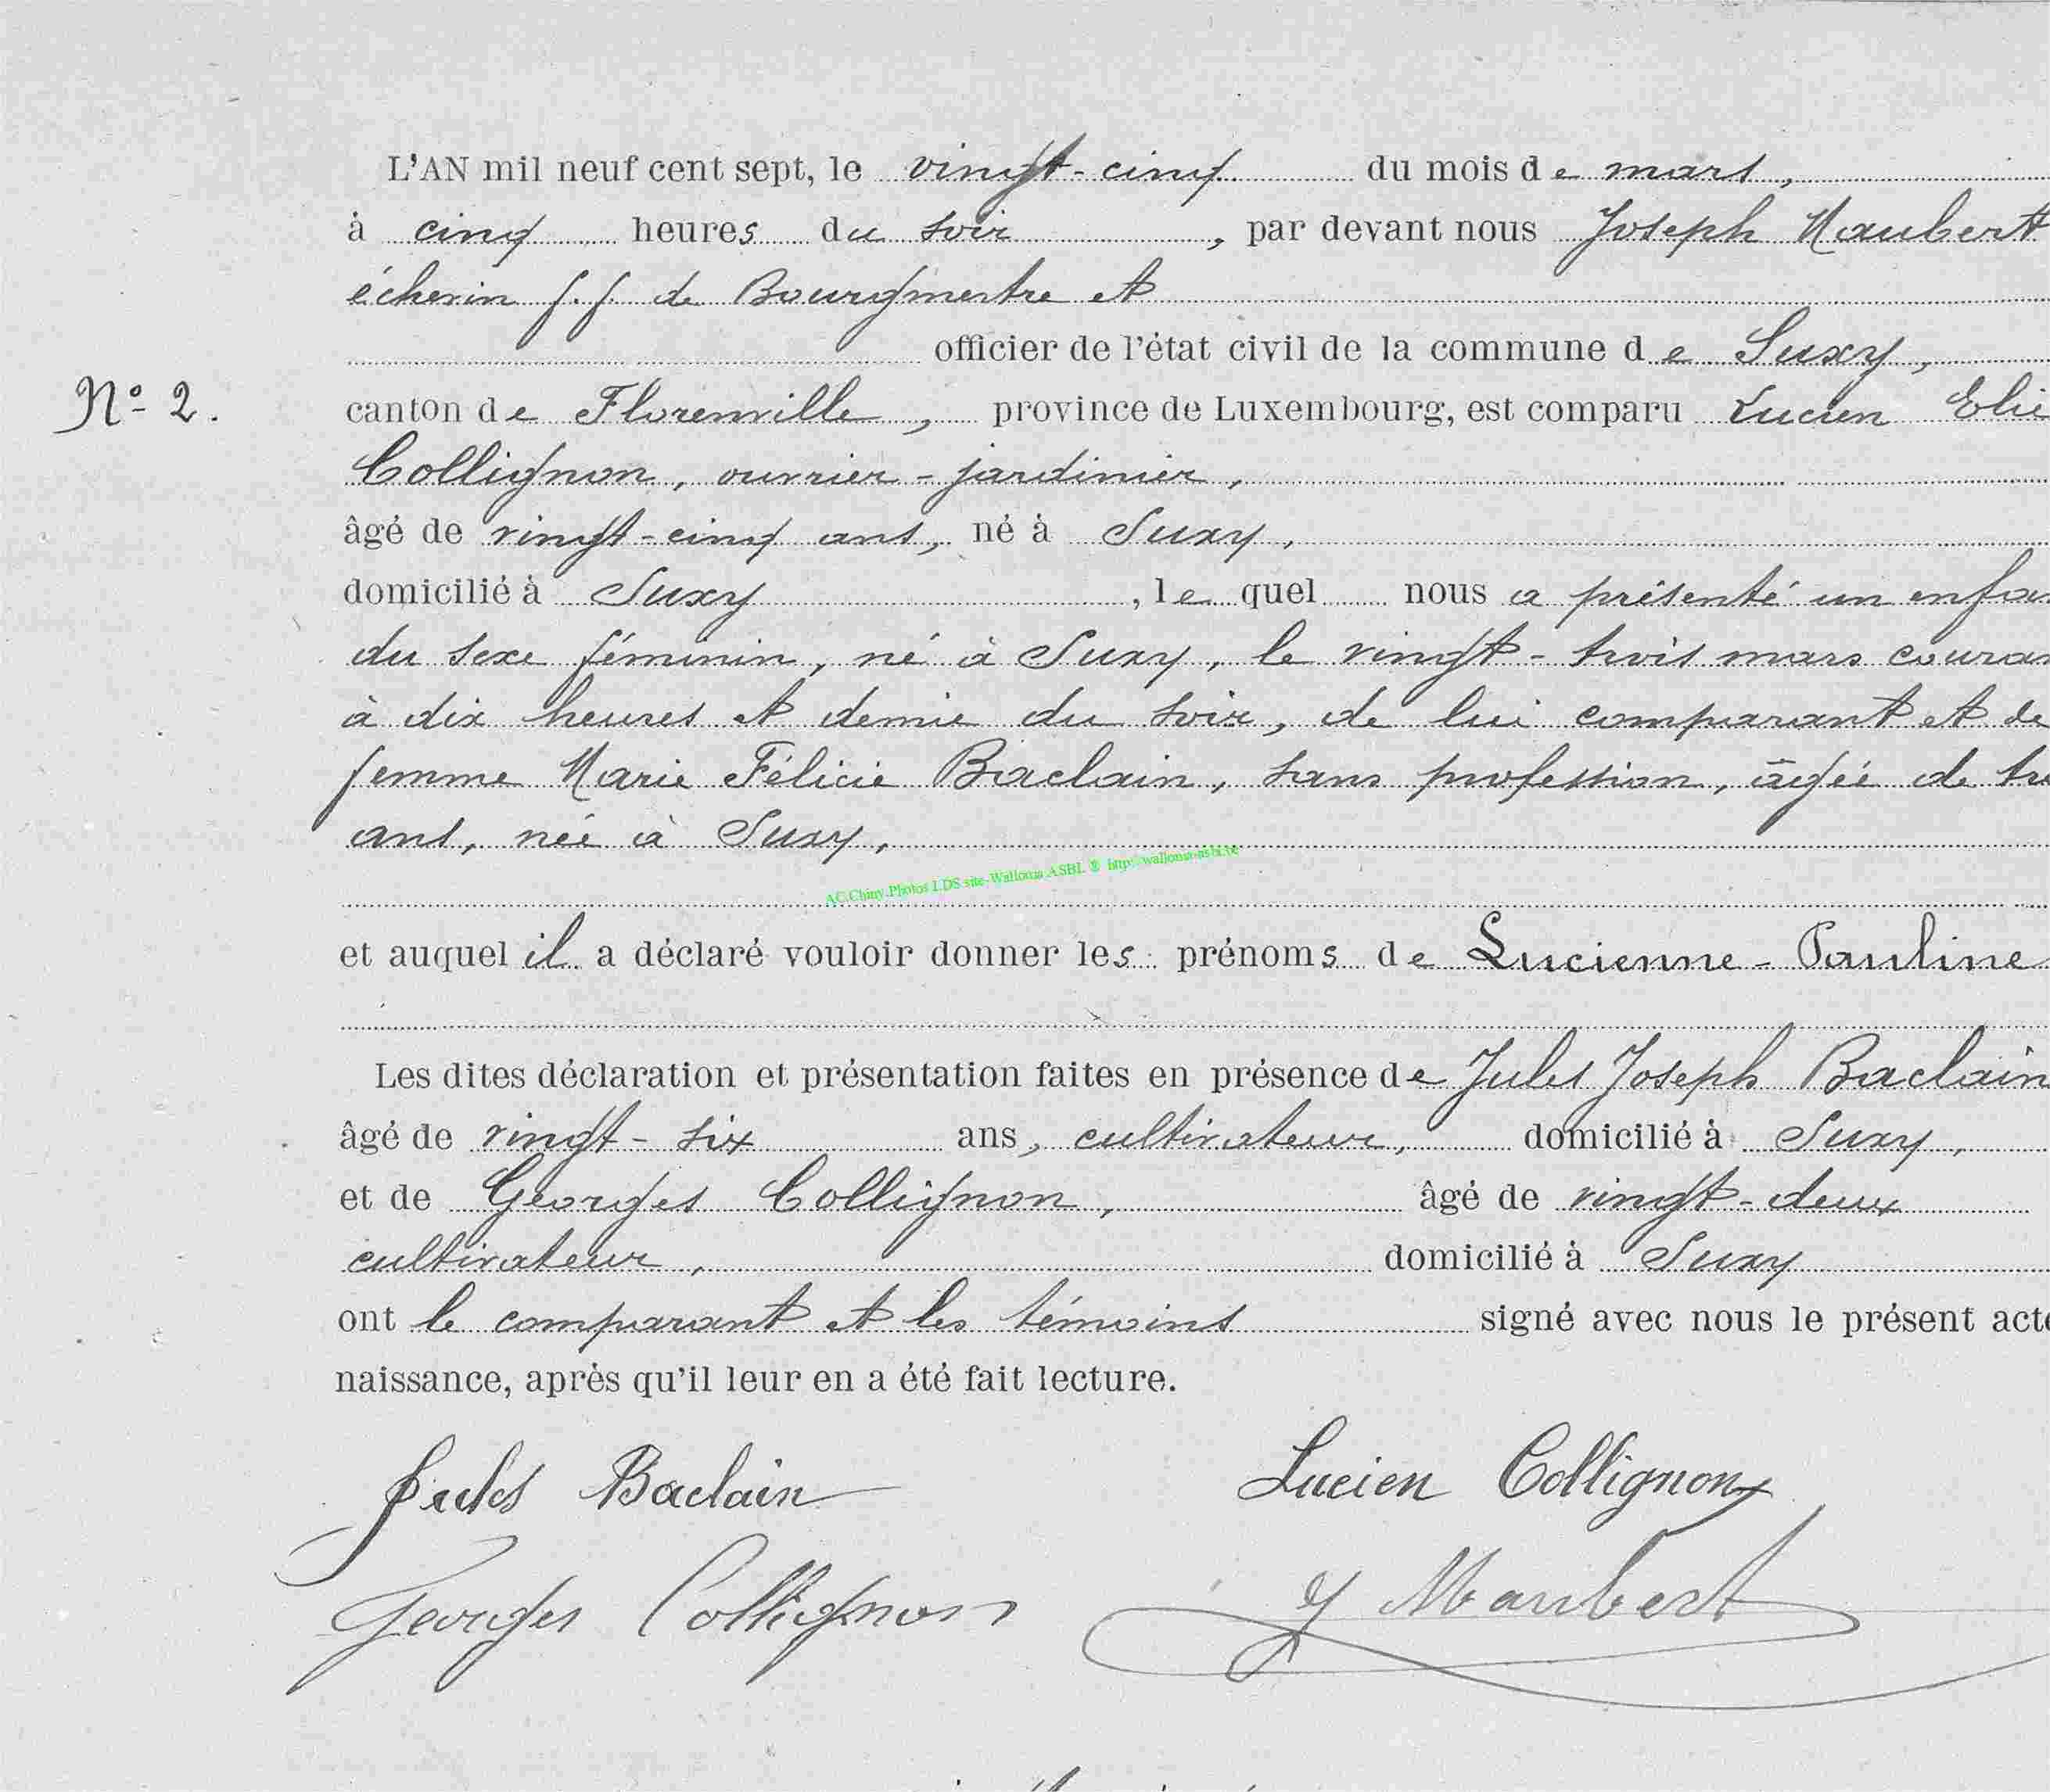 L'AN mil neuf cent sept, le vingt-cinq du mois de mars,
à cinq heures du soir, par devant nous Joseph Maubert
échevin f.f. de Bourgmestre et
officier de l'état civil de la commune de Suxy,
N° 2. canton de Florenville, province de Luxembourg, est comparu Lucien Elie
Collignon, ouvrier-jardinier,
âgé de vingt-cinq ans, né à Suxy,
domicilié à Suxy, lequel nous a présenté un enfan
du sexe féminin, né à Suxy, le vingt-trois mars couran
à dix heures et demie du soir, de lui comparant et de
femme Marie Félicie Baclain, sans profession, âgée de tre
ans, née à Suxy,
AC.Chiny.Photos LDS site-Wallonia ASBL ® http://wallonia-asbl.be
et auquel il a déclaré vouloir donner les prénoms de Lucienne-Pauline
Les dites déclaration et présentation faites en présence de Jules Joseph Baclain
âgé de vingt-six ans, cultivateur, domicilié à Suxy,
et de Georges Collignon, âgé de vingt-deux
cultivateur, domicilié à Suxy
ont le comparant et les témoins signé avec nous le présent acte
naissance, après qu'il leur en a été fait lecture.
Jules Baclain Lucien Collignon
Georges Collignon J Maubert